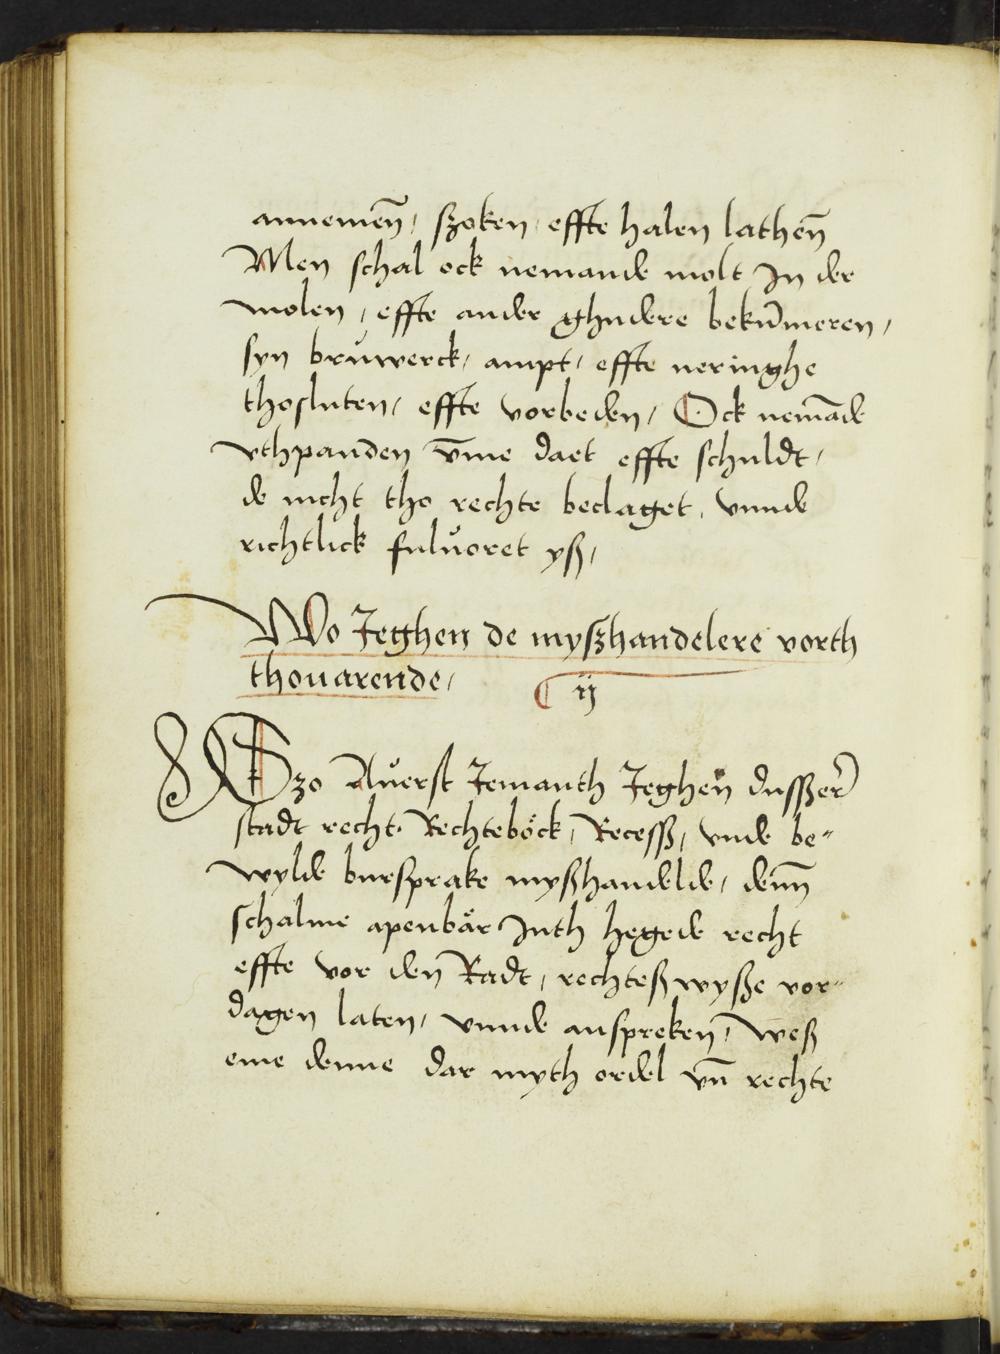 annemen̄, szoken effte halen lathen̄
Men schal ock nemande molt In der
molen, effte ander ghudere beku̅meren,
syn bruwerck, ampt, effte neringhe
thosluten, effte vorbeden, Ock nema̅de
vthpanden v̅me daet effte schuldt,
de nicht tho rechte beclaget, vnnde
richtlick fuluoret yß,
Wo Jeghen de myßhandelere vorth
thouarende,
ij
Szo Auerst Jemanth Jeghen dusszer̄
stadt recht, Rechteböck, Recesß, vnde be-
wylde bursprake myßhandelde, denn̄
schalme apenbår Inth hegede recht
effte vor den Radt, rechteß wyße vor-
dagen laten, vnnde anspreken, Weß
eme denne dar myth ordel vn̄ rechte